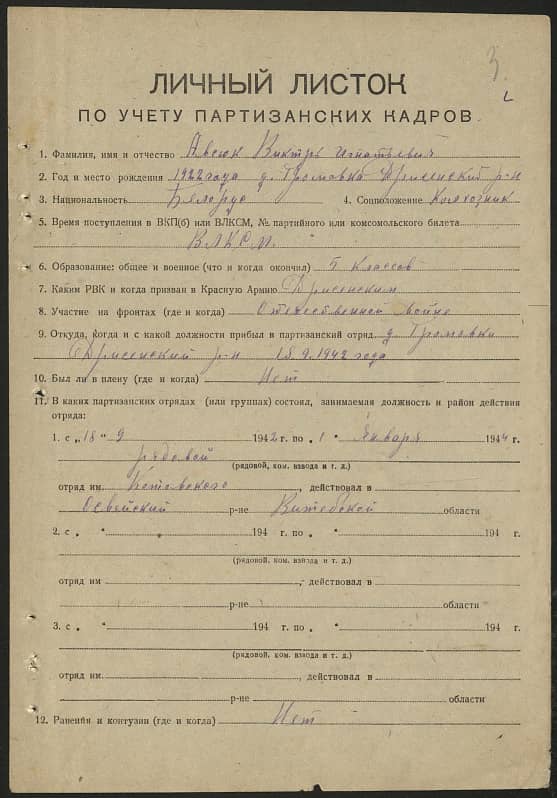 3.
ЛИЧНЫЙ ЛИСТОК
ПО УЧЕТУ ПАРТИЗАНСКИХ КАДРОВ
1. Фамилия, имя и отчество Авсюк Виктор Игнатьевич
2. Год и место рождения 1922 года д. Громовка Дрисенский р-н
3. Национальность Белорус 4. Соцположение Колхозник
5. Время поступления в ВКП(б) или ВЛКСМ, № партийного или комсомольского билета
ВЛКСМ
6. Образование: общее и военное (что и когда окончил) 5 классов
7. Каким РВК и когда призван в Красную Армию Дрисенским
8. Участие на фронтах (где и когда) Отечественной войне
9. Откуда, когда и с какой должности прибыл в партизанский отряд д. Громовки
Дрисенский р-н 18.9.1942 года
10. Был ли в плену (где и когда) Нет
11. В каких партизанских отрядах (или группах) состоял, занимаемая должность и район действия
отряда:
1. с „18" 9 1942 г. по „1" Января 1944 г.
рядовой
(рядовой, ком. взвода и т. д.)
отряд им. Котовского, действовал в
Освейский р-не Витебской области
2. с „ " 194 г. по „ " 194 г.
(рядовой, ком. взвода и т. д.)
отряд им , действовал в
р-не области
3. с „ " 194 г. по „ " 194 г.
(рядовой, ком. взвода и т. д.)
отряд им. , действовал в
р-не области
12. Ранения и контузии (где и когда) Нет